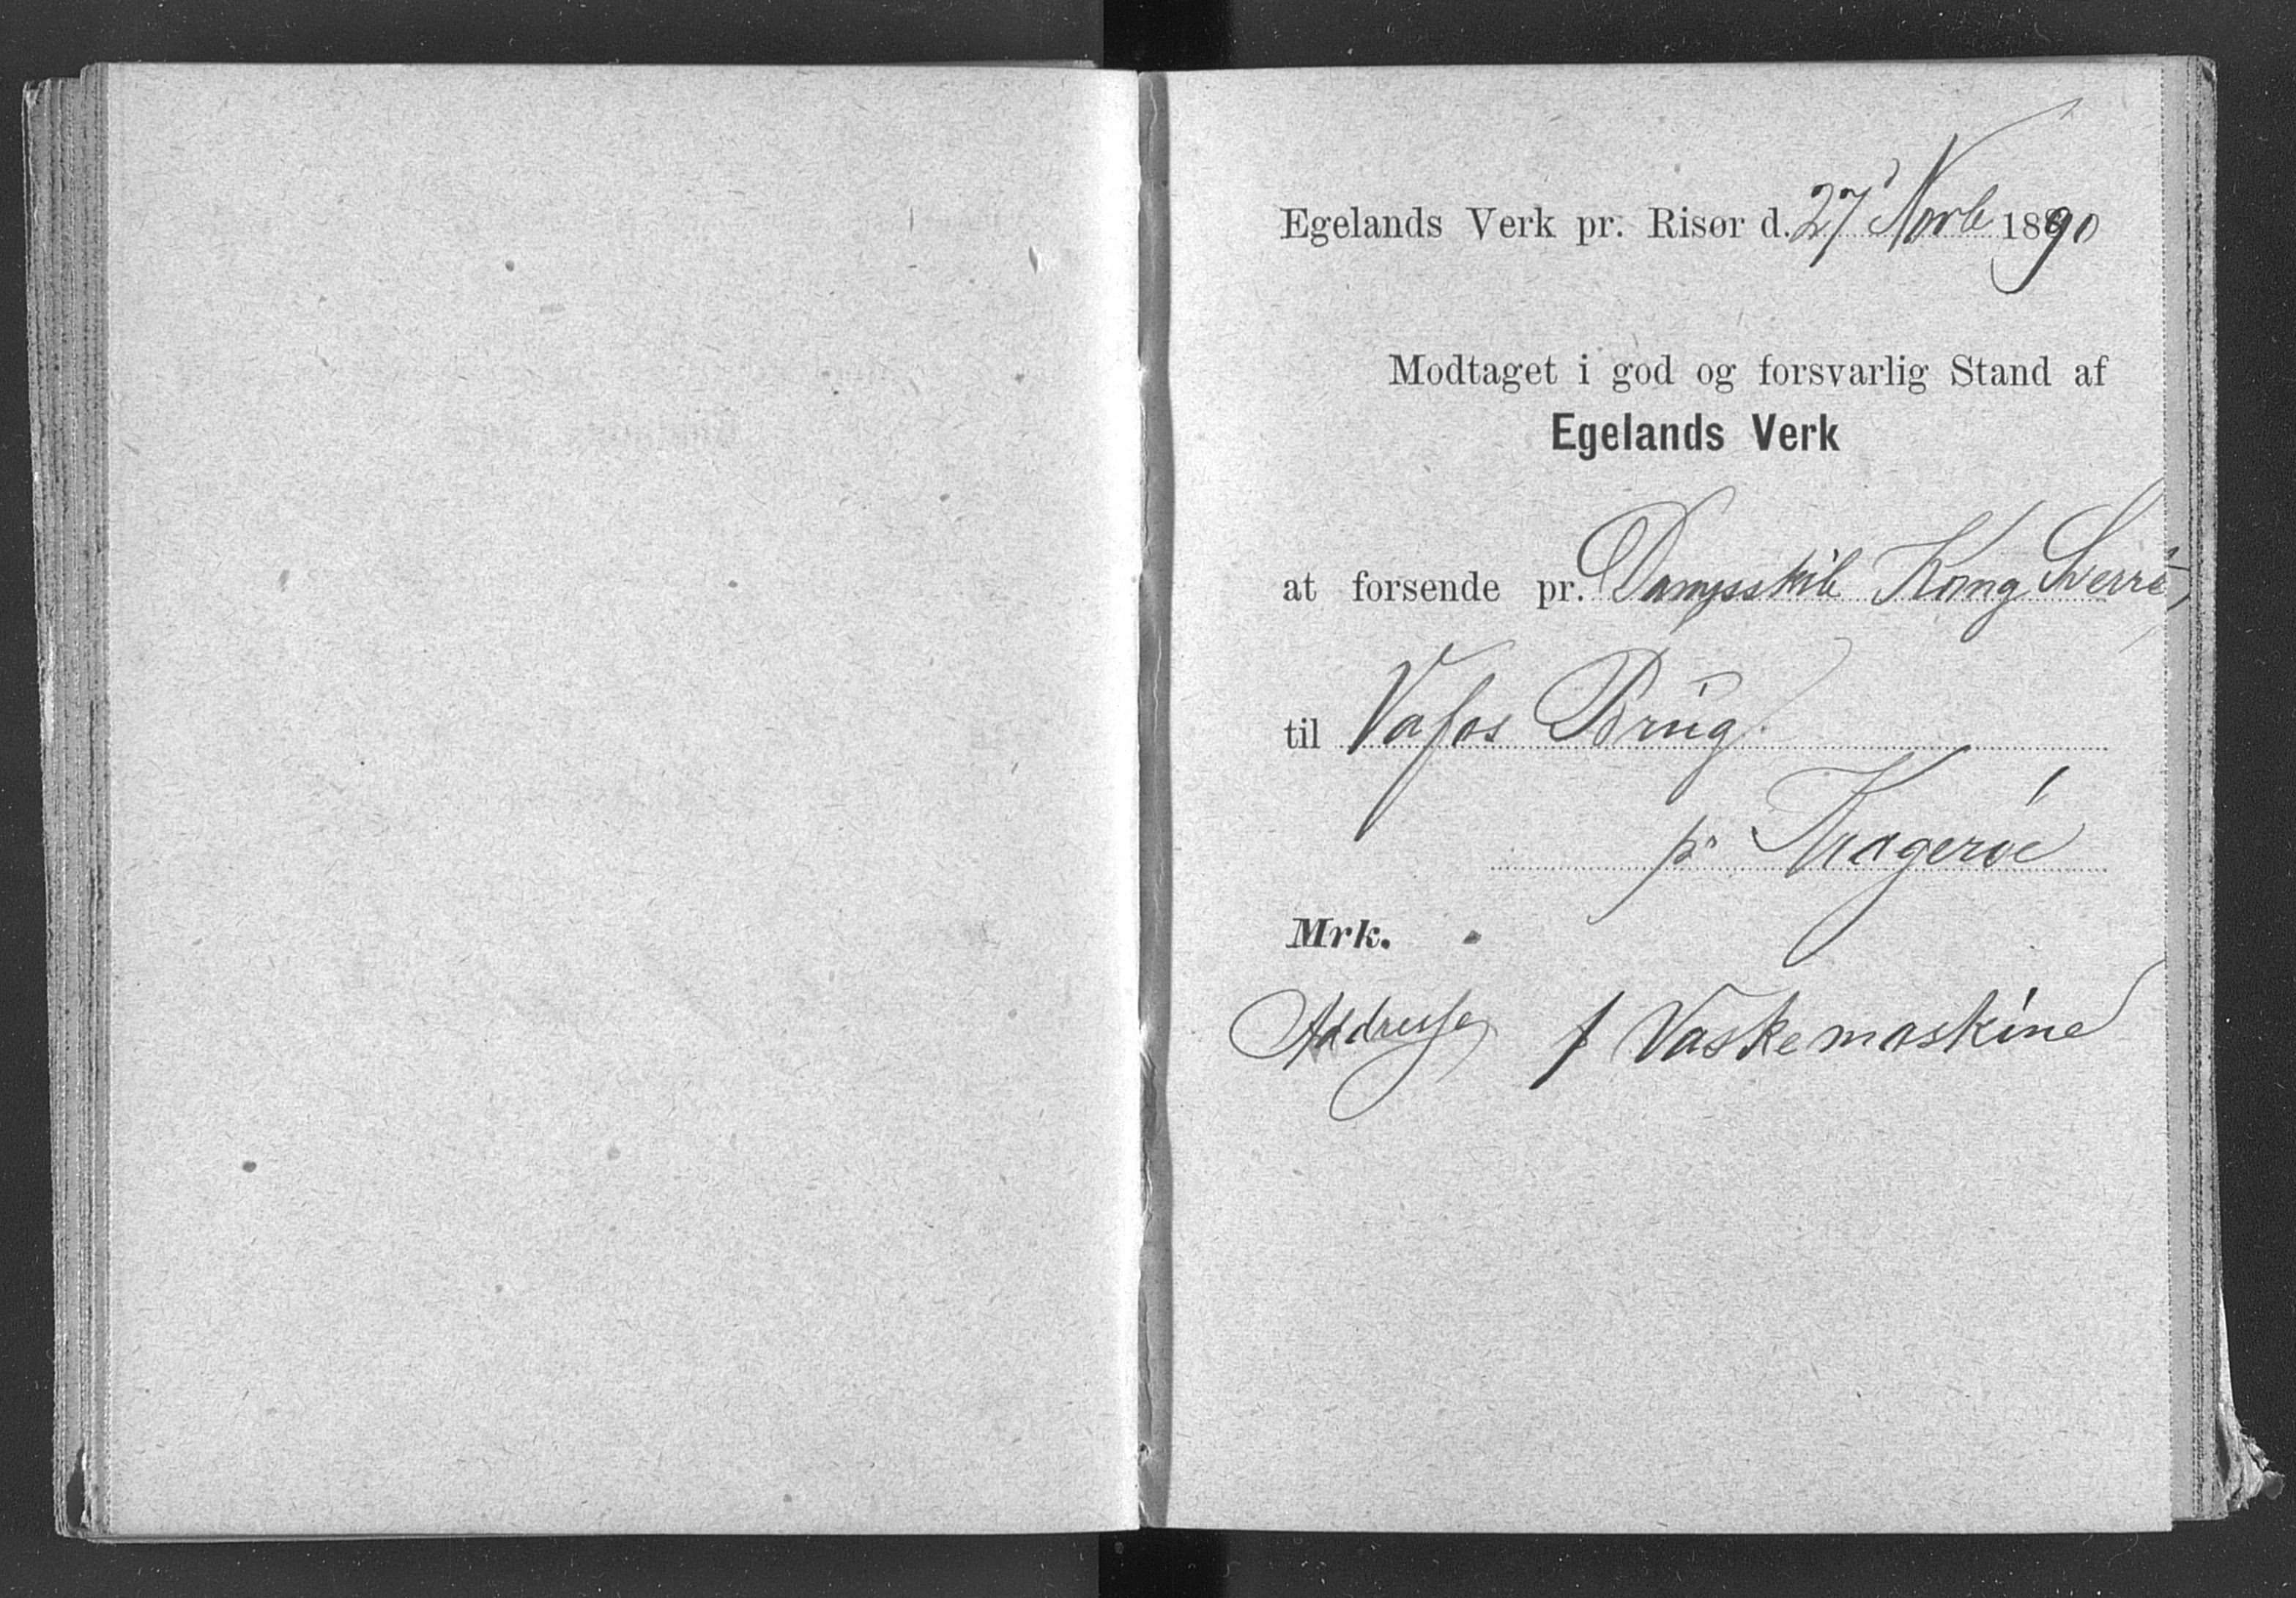 Egelands Verk pr. Risør d. 27 Novb 1890
Modtaget i god og forsvarlig Stand af
Egelands Verk
at forsende pr. Dampskib Kong Sverre,
til Vafos Brug
pr Kragerøe
Mrk.
Addresse 1 Vaskemaskine